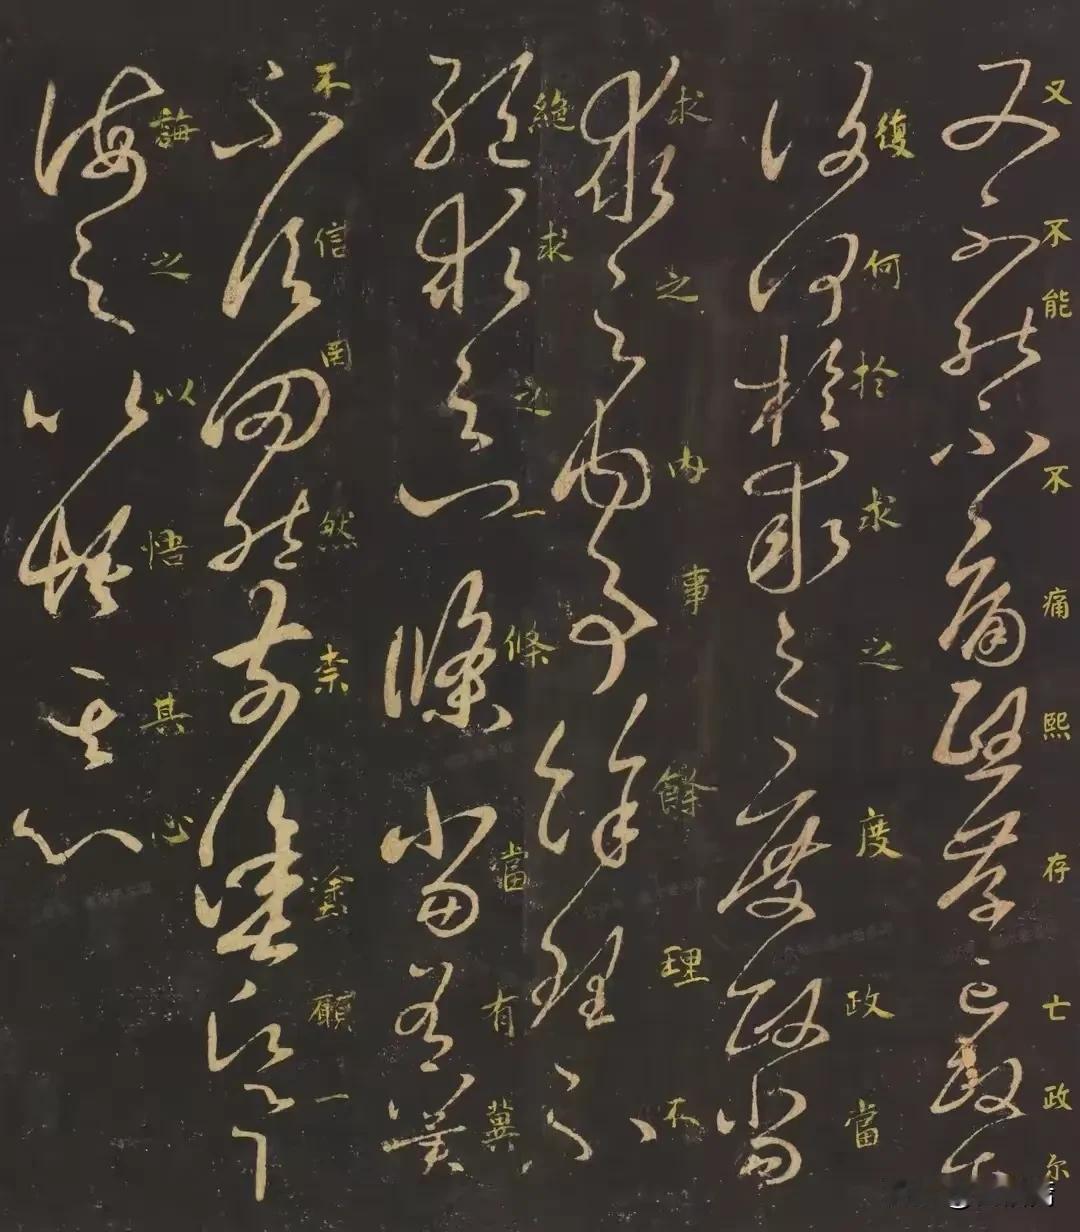 又不能不痛熙存亡政尔
復何於求之度政當
求之内事餘理不
絶求之一條當有冀
不信罔然柰塗願一
誨之以悟其心